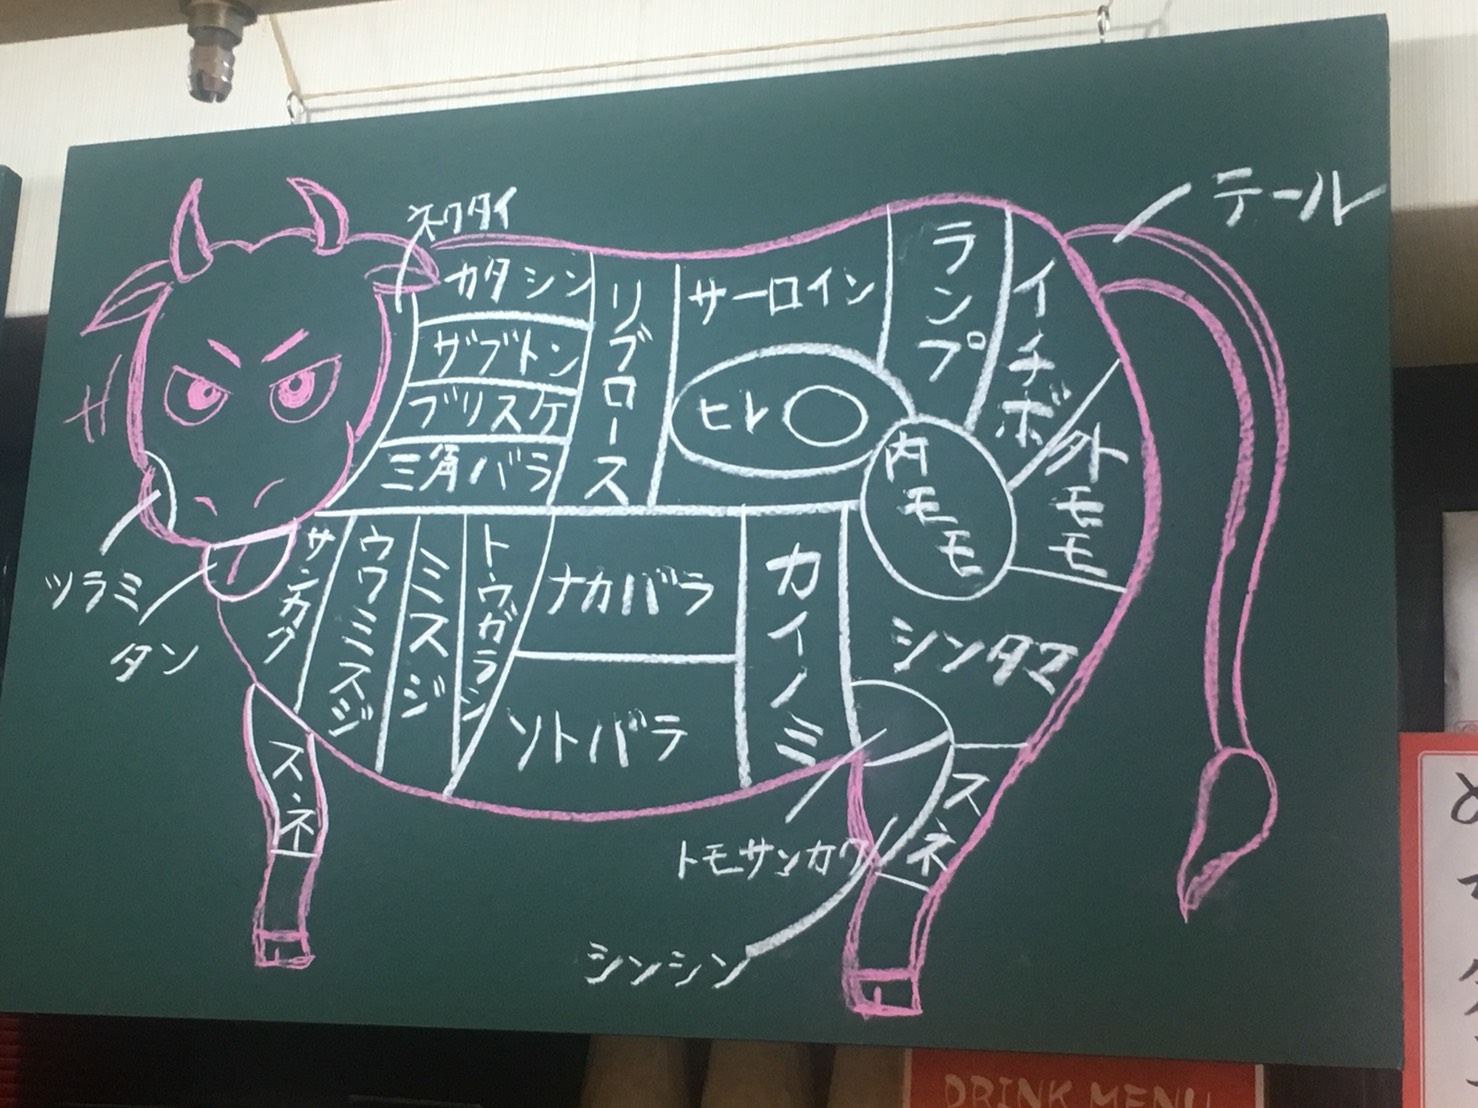 テール
ネクタイ
カタシン
ザブトン
ブリスケ
三角バラ
リブロース
サーロイン
ヒレ
ランプ
イチボ
内モモ
外モモ
ツラミ
タン
サンカク
ウワミスジ
ミスジ
トウガラシ
ナカバラ
ソトバラ
カイノミ
シンタマ
スネ
スネ
トモサンカク
シンシン
DRINK MENU